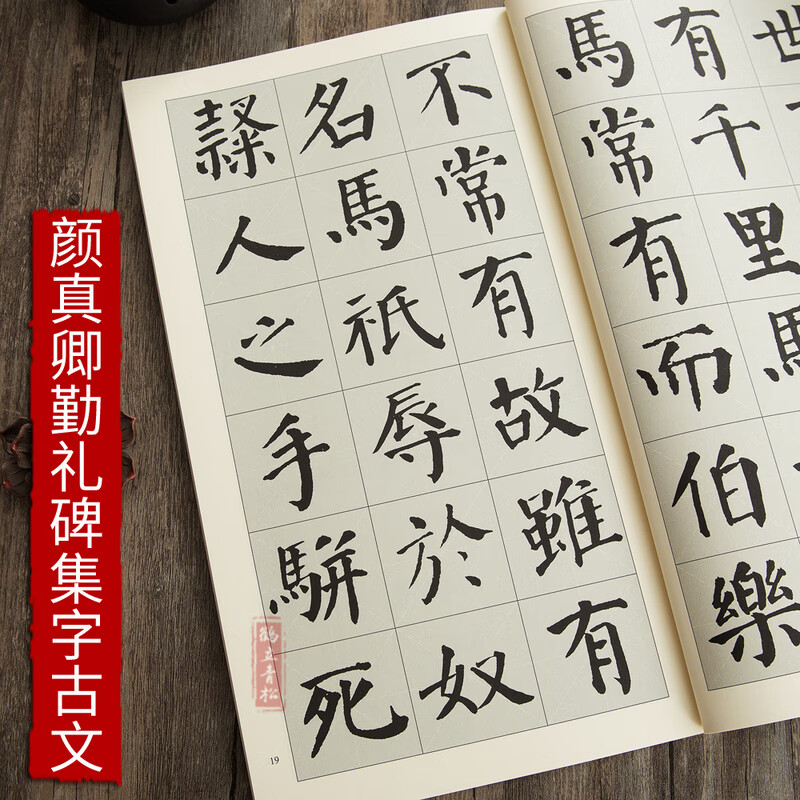 颜真卿勤礼碑集字古文
世
有千里馬
馬常有而伯樂
不常有故雖有
名馬祇辱於奴
隸人之手駢死
19
鹤立青松